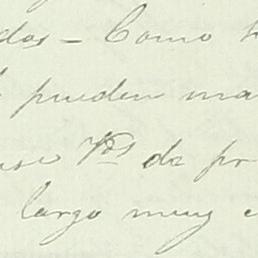 dos – Como
pueden ma
Vds de pr
largo muy